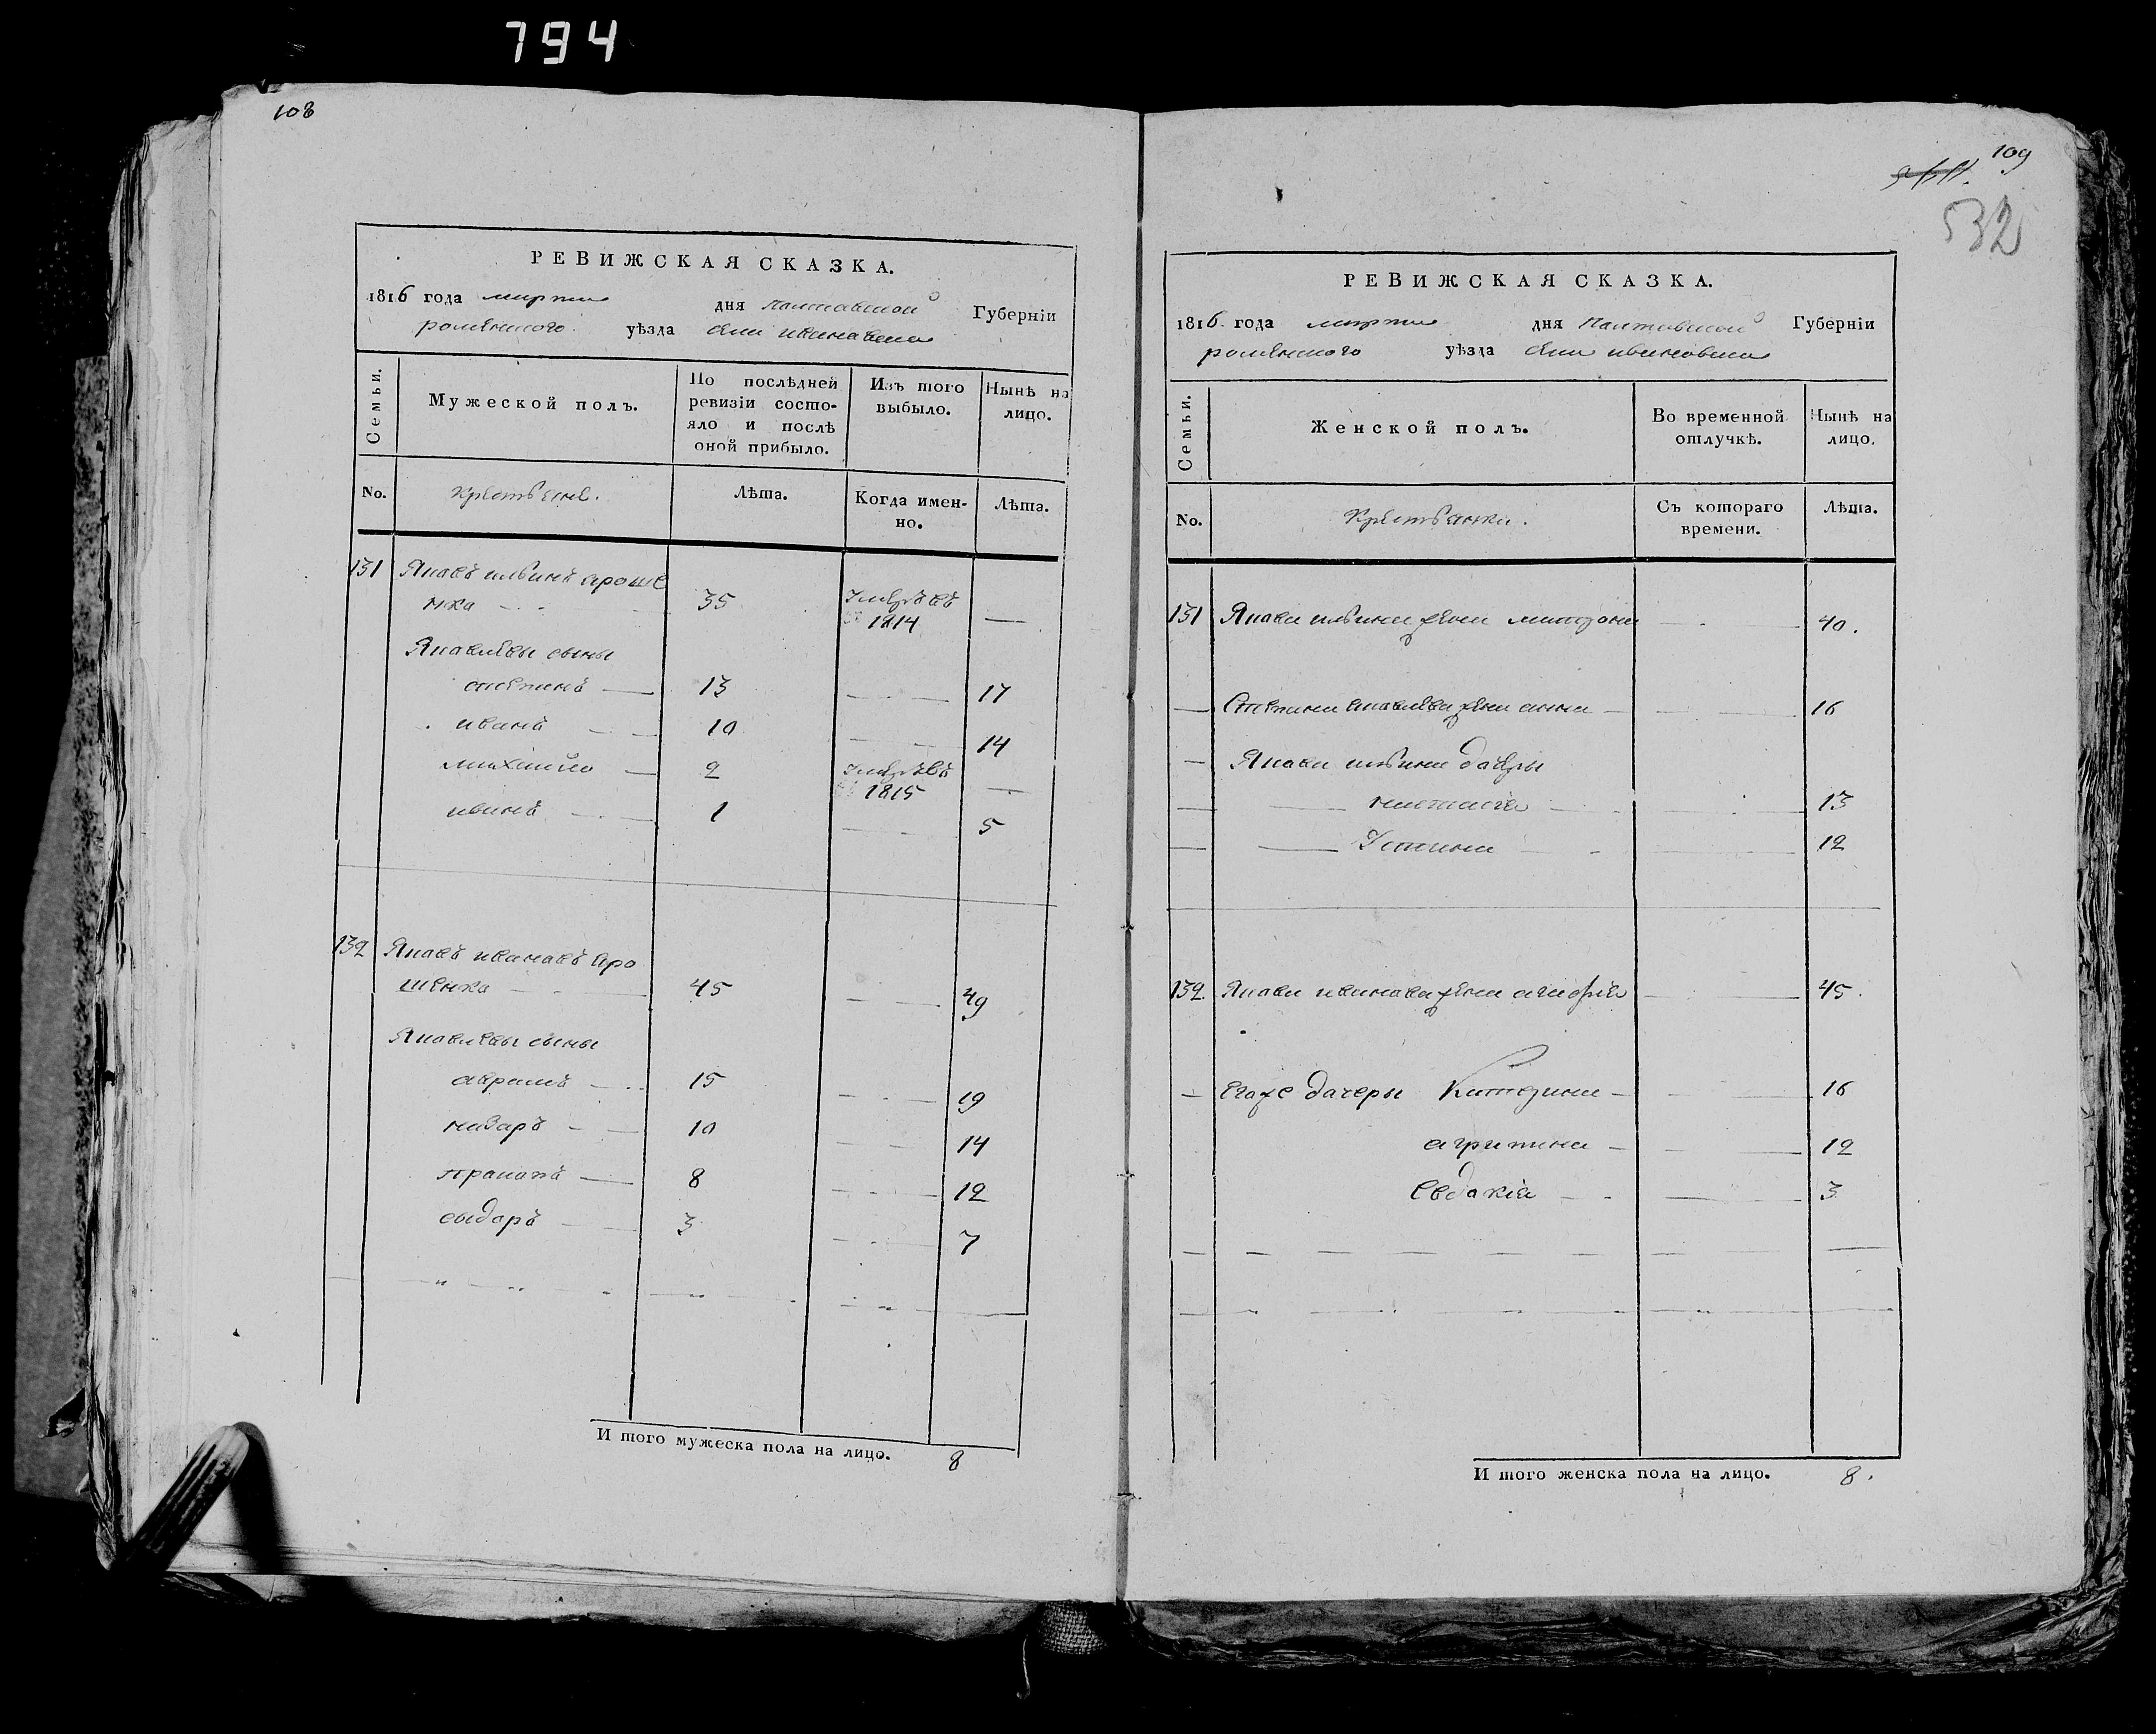 794
108
РЕВИЖСКАЯ СКАЗКА.
1816 года марта дня полтавской Губерніи
роменского уѣзда села ивановка
Семьи.
Мужеской полъ.
По послѣдней ревизіи состояло и послѣ оной прибыло.
Изъ того выбыло.
Нынѣ на лицо.
No.
Крестьяне.
Лѣта.
Когда именно.
Лѣта.
131 Яковъ ильинъ яроше
нка 35 умеръ въ 1814 —
Яковлевы сыны
степанъ 13 17
иванъ 10 14
михайло 2 умеръ въ 1815 —
иванъ 1 5
132 Яковъ ивановъ яро
шенка 45 49
Яковлевы сыны
аврамъ 15 19
назаръ 10 14
пракопъ 8 12
сыдоръ 3 7
И того мужеска пола на лицо. 8
109
532
РЕВИЖСКАЯ СКАЗКА.
1816. года марта дня Полтавской Губерніи
роменского уѣзда села ивановка
Семьи.
Женской полъ.
Во временной отлучкѣ.
Нынѣ на лицо.
No.
Крестьянки.
Съ котораго времени.
Лѣта.
131 Якова ильина жена 40.
Степана яковлева жена анна 16
Якова ильина дочери
настасія 13
Устина 12
132. Якова иванова жена 45.
Егоже дочери Катерина 16
агрипина 12
Евдокія 3
И того женска пола на лицо. 8.